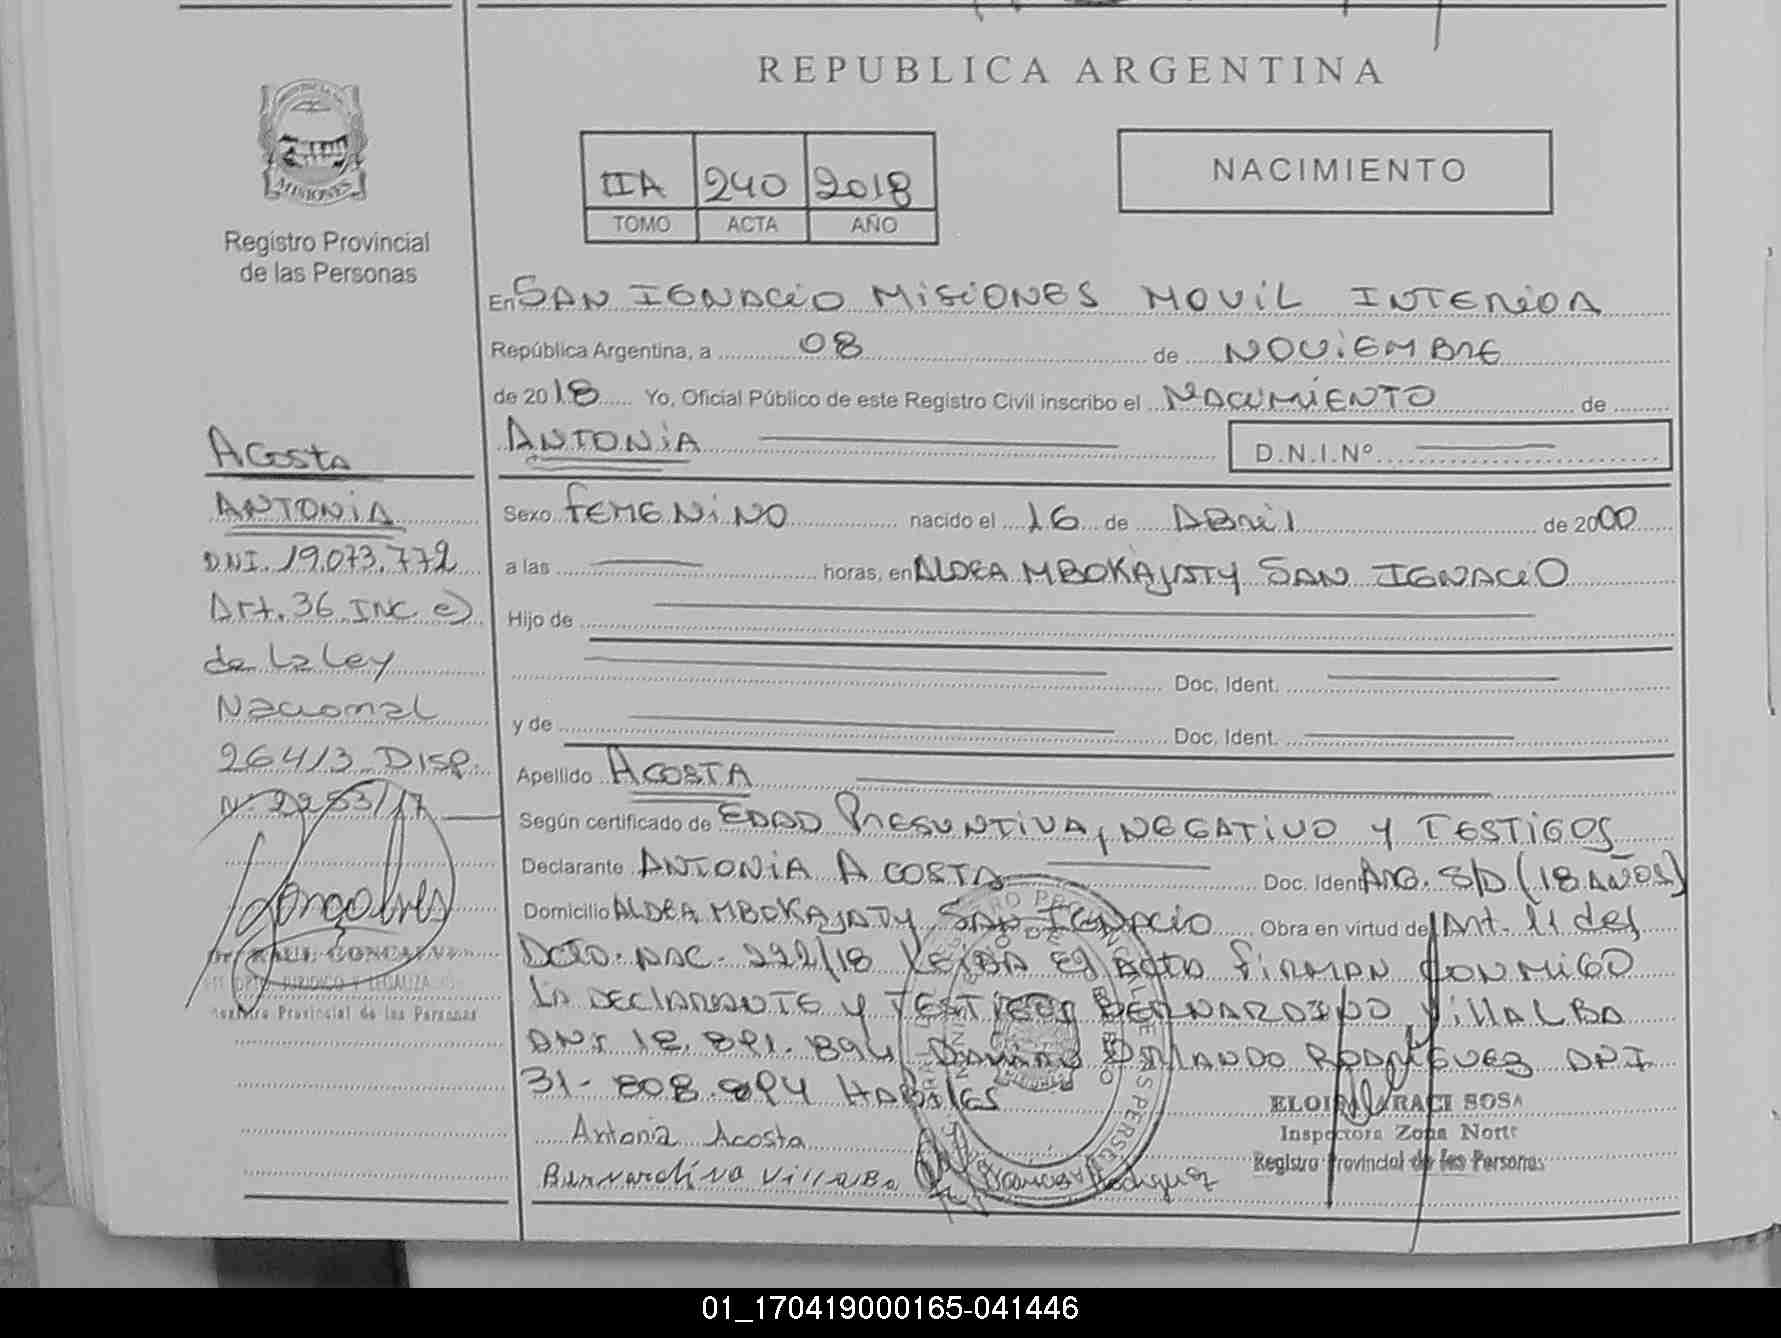 REPUBLICA ARGENTINA
MISIONES
Registro Provincial
de las Personas
IIA 240 2018
TOMO ACTA AÑO
NACIMIENTO
En SAN IGNACIO MISIONES MOVIL INTERIOR
República Argentina, a 08 de NOVIEMBRE
de 2018 Yo, Oficial Público de este Registro Civil inscribo el NACIMIENTO de
ANTONIA D.N.I.Nº
Acosta
ANTONIA
DNI. 19.073.772
Art. 36 INC e)
de la Ley
Nacional
26413 DISP.
Nº 2253/17
Goncalves
Dr. RAUL GONCALVES
DPTO. JURIDICO Y LEGALIZA
Registro Provincial de las Personas
Sexo FEMENINO nacido el 16 de ABRIL de 2000
a las horas, en ALDEA MBOKAJATY SAN IGNACIO
Hijo de
Doc. Ident.
y de Doc. Ident.
Apellido ACOSTA
Según certificado de EDAD PRESUNTIVA, NEGATIVO Y TESTIGOS
Declarante ANTONIA ACOSTA Doc. Ident ARG. S/D (18 AÑOS)
Domicilio ALDEA MBOKAJATY SAN IGNACIO Obra en virtud de Art. 11 del
DCTO. NAC. 222/18 LEIDA EL ACTA FIRMAN CONMIGO
LA DECLARANTE Y TESTIGOS BERNARDINO VILLALBA
DNI 18.891.894 ORLANDO RODRIGUEZ DNI
31.808.894 HABILES
Antonia Acosta
Bernardino Villalba Rodriguez
ARACI SOSA
Inspectora Zona Norte
Registro Provincial de las Personas
01_170419000165-041446